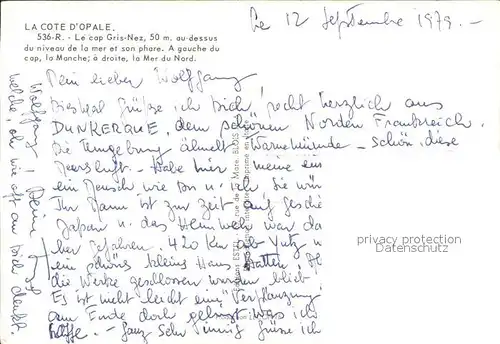 LA COTE D'OPALE.
536-R. - Le cap Gris-Nez, 50 m. au-dessus
du niveau de la mer et son phare. A gauche du
cap, la Manche; à droite, la Mer du Nord.
Le 12 Septembre 1979. -
Mein lieber Wolfgang
Diesmal grüße ich Dich recht herzlich aus
DUNKERQUE, dem schönen Norden Frankreich.
Die Umgebung ähnelt Warnemünde - schön, diese
Meersluft. - Habe hier meine
ein Mensch wie Du u. ich. Sie
Ihr Mann ist zur Zeit auf
Japan u. das Heimweh war da
her gefahren. 420 Km ab Yutz u
ein schönes kleines Haus hatten
die Werke geschlossen wurden blieb
Es ist nicht leicht eine Verpflanzung
am Ende doch gelingt was ich
hoffe. - Ganz sehr innig grüße ich
Wolfgang! Deine
welche, ich wie oft an Dich denkt.
privacy protection
Datenschutz